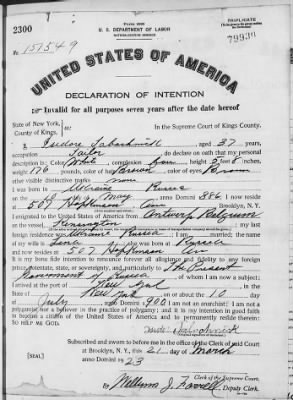 TRIPLICATE
2300
U. S. DEPARTMENT OF LABOR
NATURALIZATION SERVICE
79930
No. 151549
UNITED STATES OF AMERICA
DECLARATION OF INTENTION
Invalid for all purposes seven years after the date hereof
State of New York,
County of Kings,
ss:
In the Supreme Court of Kings County.
I, Isidore, aged 37 years,
occupation Tailor, do declare on oath that my personal
description is: Color White, complexion, height 5 feet 8 inches,
weight 176 pounds, color of hair Brown, color of eyes Brown
other visible distinctive marks none
I was born in Ukraine Russia
on the day of May, anno Domini 1886; I now reside
at 507 Hopkinson Ave Brooklyn, N. Y.
I emigrated to the United States of America from Antwerp Belgium
on the vessel; my last
foreign residence was Ukraine Russia; I am married; the name of my
wife is Lena; she was born at Russia
and now resides at 507 Hopkinson Ave
It is my bona fide intention to renounce forever all allegiance and fidelity to any foreign
prince, potentate, state, or sovereignty, and particularly to The Present
Government of Russia, of whom I am now a subject;
I arrived at the port of New York, in the
State of New York, on or about the 10 day
of July, anno Domini 1900; I am not an anarchist; I am not a
polygamist nor a believer in the practice of polygamy; and it is my intention in good faith
to become a citizen of the United States of America and to permanently reside therein:
SO HELP ME GOD.
Subscribed and sworn to before me in the office of the Clerk of said Court
at Brooklyn, N. Y., this 21 day of March
anno Domini 1923
[SEAL]
Clerk of the Supreme Court.
By William J. Farrell, Deputy Clerk.